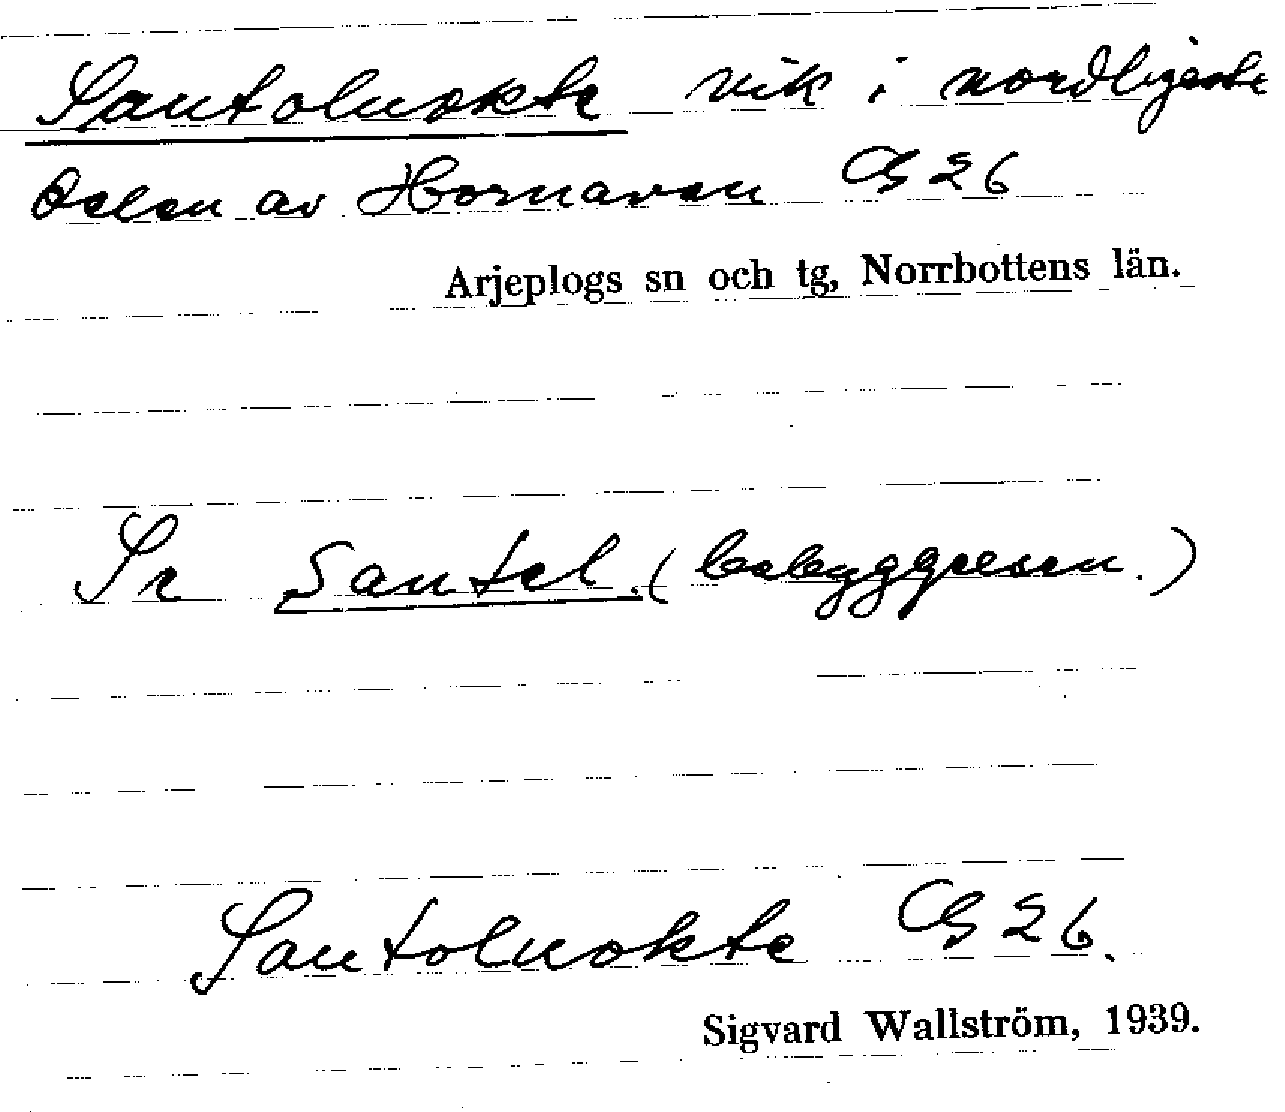 Santoluokte vik i nordligaste
delen av Hornavan G 26
Arjeplogs sn och tg, Norrbottens län.
Se Santel. (bebyggelsen.)
Santoluokte G 26.
Sigvard Wallström, 1939.